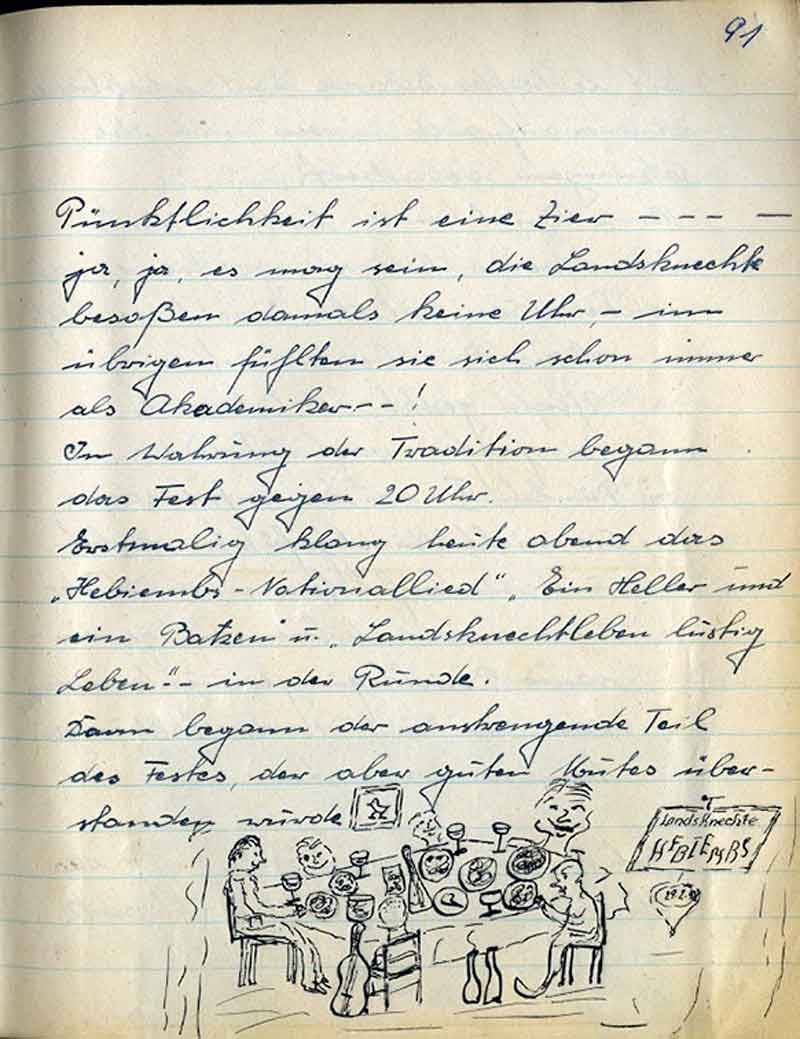 91
Pünktlichkeit ist eine Zier - - - -
ja, ja, es mag sein, die Landsknechte
besaßen damals keine Uhr, - im
übrigen fühlten sie sich schon immer
als Akademiker - - !
In Wahrung der Tradition begann
das Fest gegen 20 Uhr.
Erstmalig klang heute abend das
„Hebiembs - Nationallied" „Ein Heller und
ein Batzen" u. „Landsknechtleben lustig
Leben" - in der Runde.
Dann begann der anstrengende Teil
des Festes, der aber guten Mutes über-
standen wurde
Landsknechte
HEBIEMBS